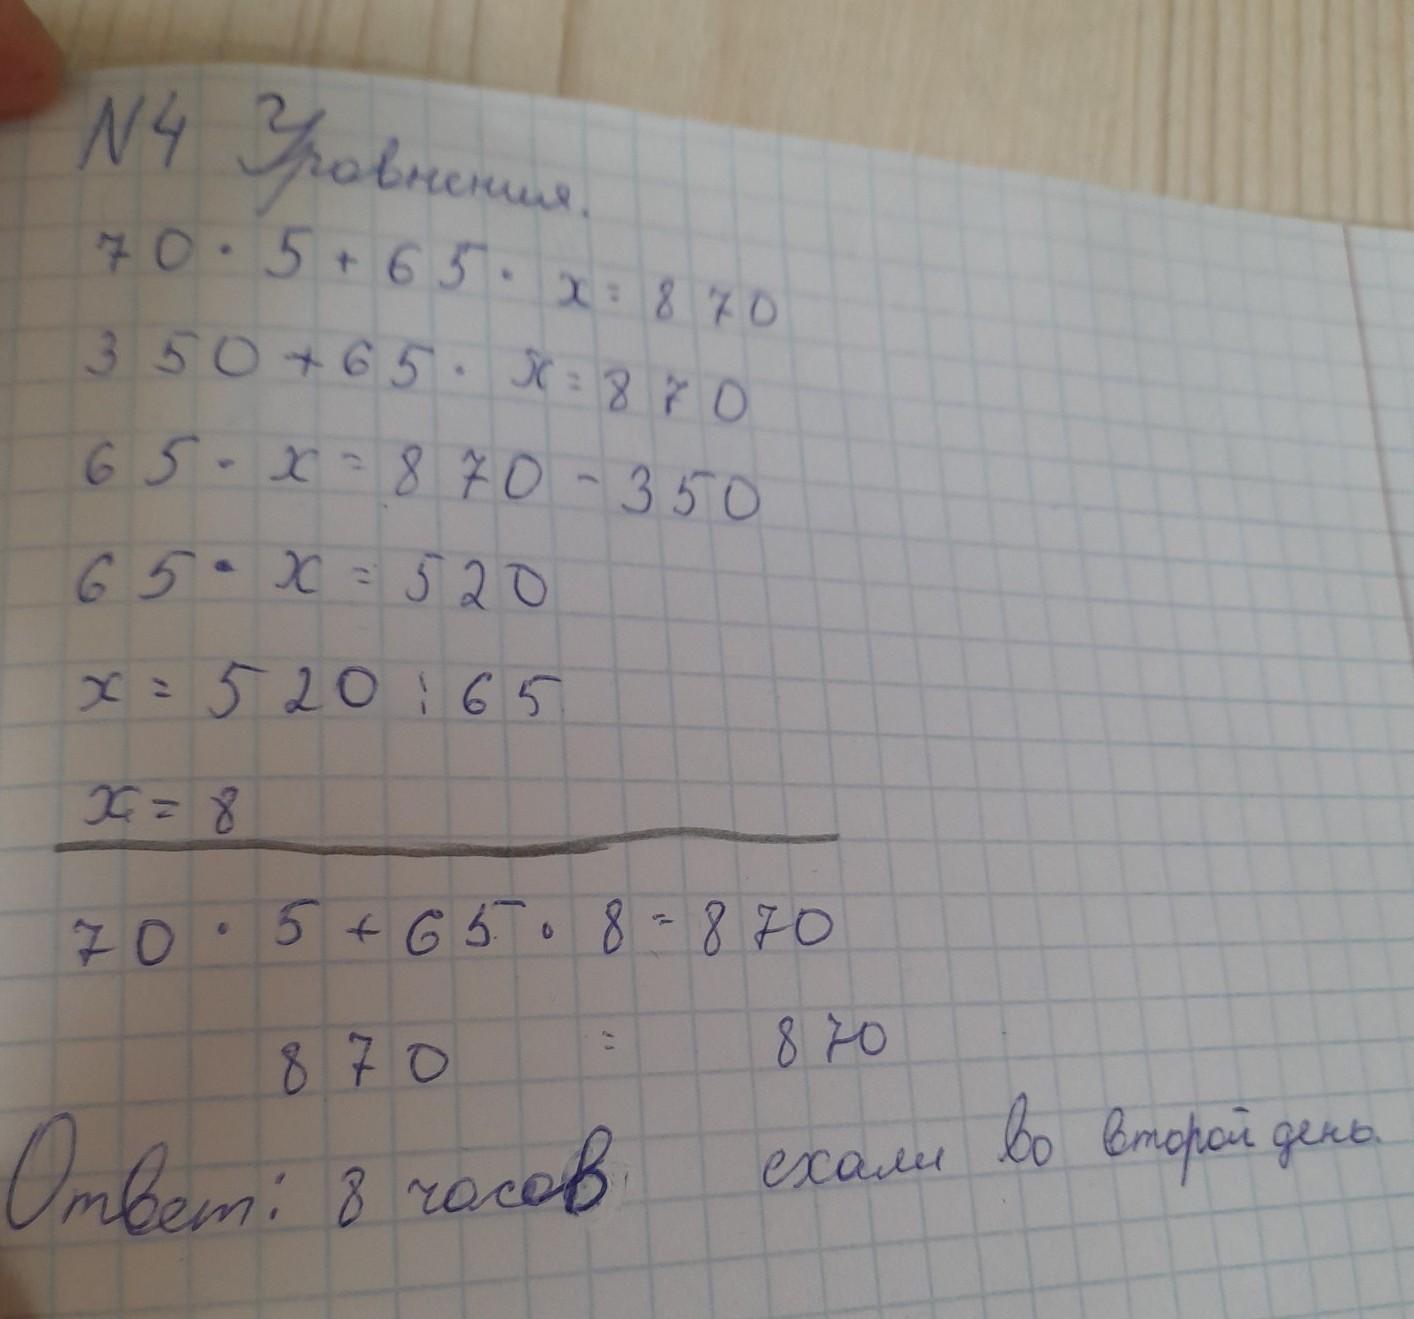 N4 Уравнения.
70 · 5 + 65 · x = 870
350 + 65 · x = 870
65 · x = 870 - 350
65 · x = 520
x = 520 : 65
x = 8
70 · 5 + 65 · 8 = 870
870 = 870
Ответ: 8 часов ехали во второй день.